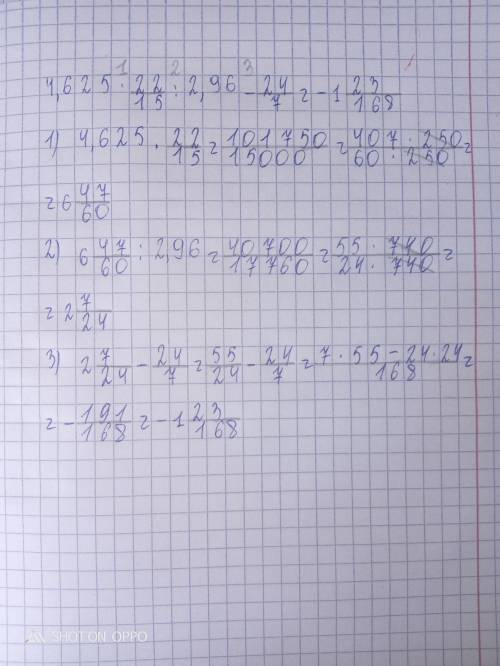 1 2 3
4,625 · 22/15 : 2,96 - 24/7 = -1 23/168
1) 4,625 · 22/15 = 101750/15000 = 407 · 250/60 · 250 =
= 6 47/60
2) 6 47/60 : 2,96 = 40700/17760 = 55 · 740/24 · 740 =
= 2 7/24
3) 2 7/24 - 24/7 = 55/24 - 24/7 = 7 · 55 - 24 · 24/168 =
= - 191/168 = -1 23/168
SHOT ON OPPO